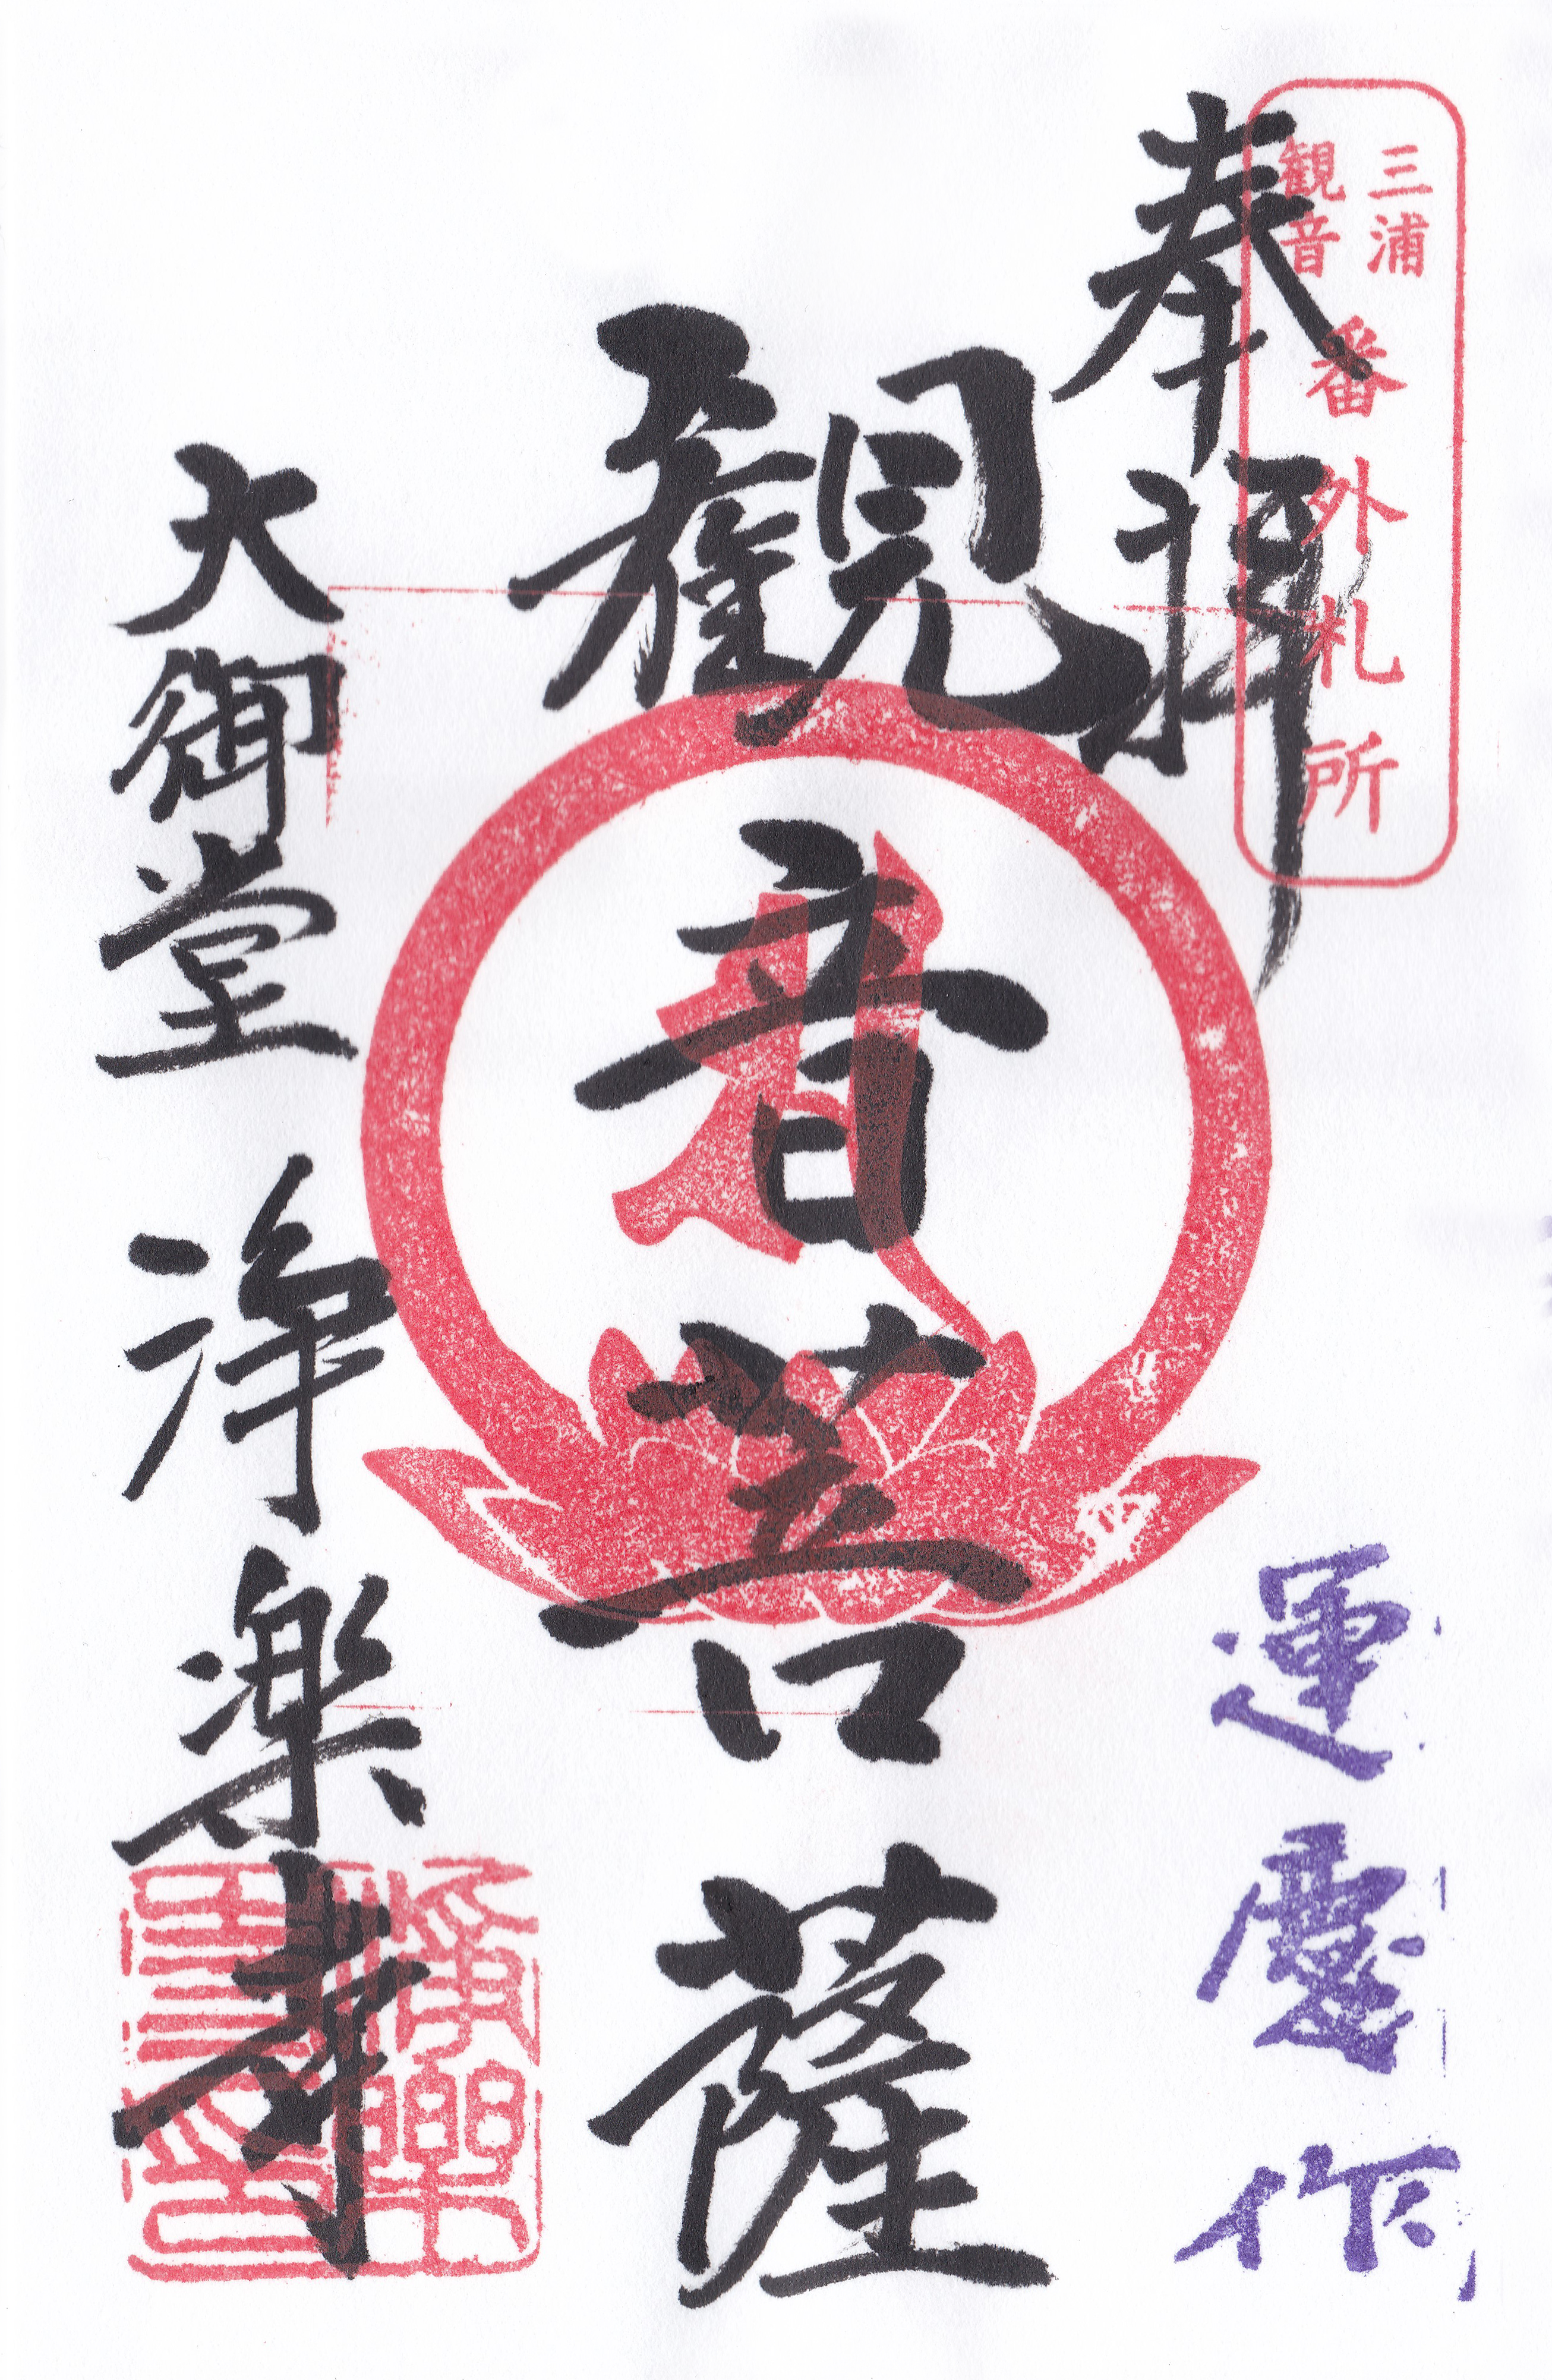 三浦
観音
番外札所
奉拝
運慶作
観音菩薩
大御堂 浄楽寺